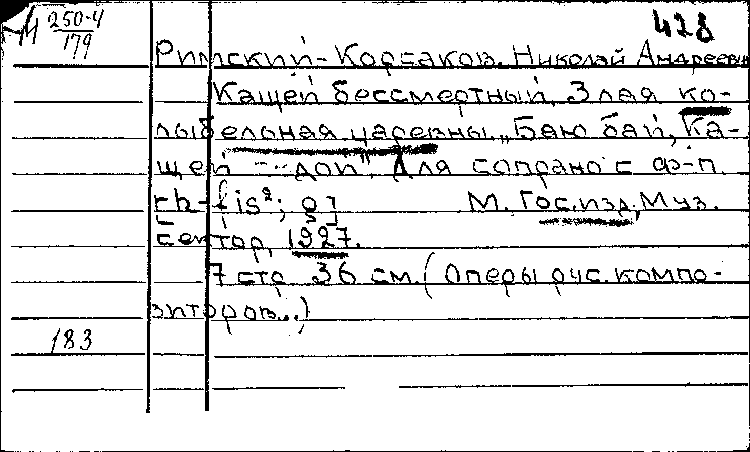 М 250-4
179
428
Римский-Корсаков, Николай Андреевич
Кащей бессмертный. Злая ко-
лыбельная царевны „Баю бай, Ка-
щей --- дой". Для сопрано с ф-п.
[h-fis²; g]
М. Гос. изд. Муз.
сектор, 1927.
7 стр. 36 см. (Оперы рус. компо-
зиторов..)
183